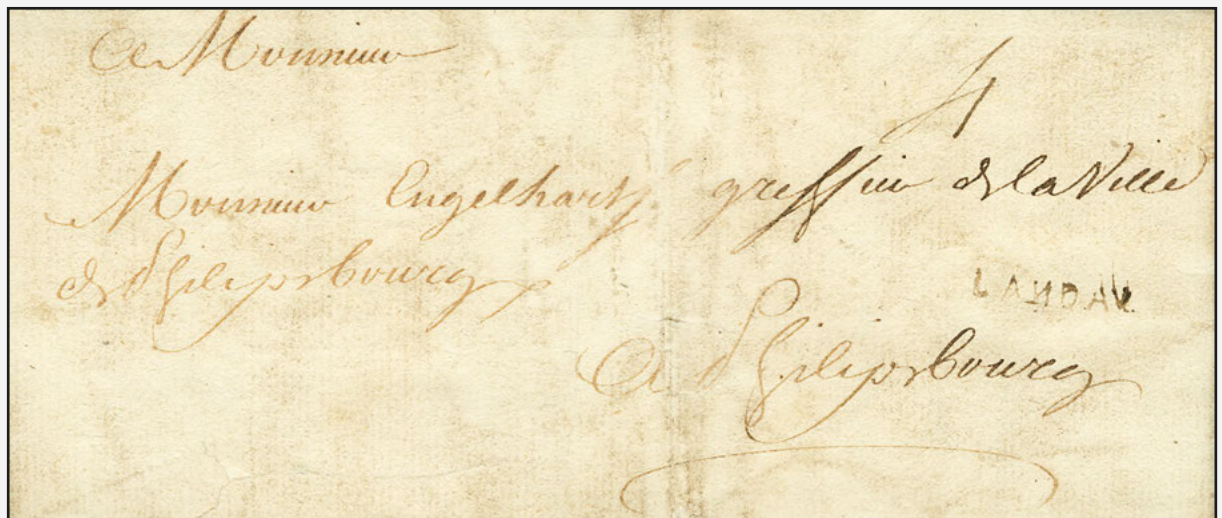 A Monsieur
4
Monsieur Engelhart greffier de la Ville
de Philipsbourg
LANDAU
A Philipsbourg